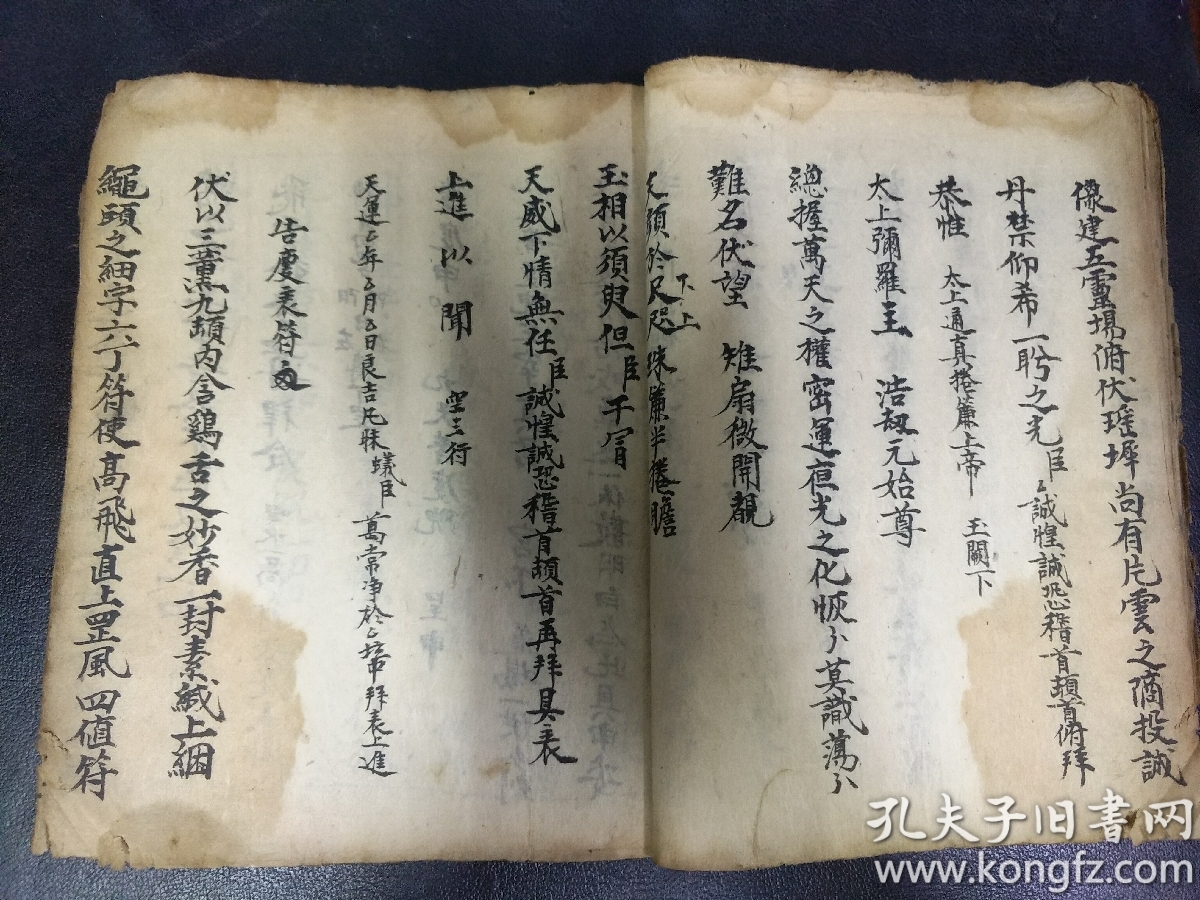 像建五靈場俯伏瑤墀尚有片雲之滴投誠
丹禁仰希一盻之光臣〻誠惶誠恐稽首頓首俯拜
恭惟 太上通真捲簾上帝 玉闕下
太上彌羅主 浩刼元始尊
總握萬天之權密運亘光之化恢〻莫識蕩〻
難名伏望 雉扇微開覩
天顔於咫尺 珠簾半捲瞻
下 上
玉相以須臾但臣干冐
天威下情無任臣誠惶誠恐稽首頓首再拜具表
上進以聞 空三行
天運〻年〻月〻日良吉凡昧 蟻臣 萬常淨於〻壇拜表上進
告慶表符
伏以三薰九頓內含鷄舌之妙香一封素緘上綑
繩頭之細字六丁符使高飛直上罡風四值符
孔夫子旧书网
www.kongfz.com